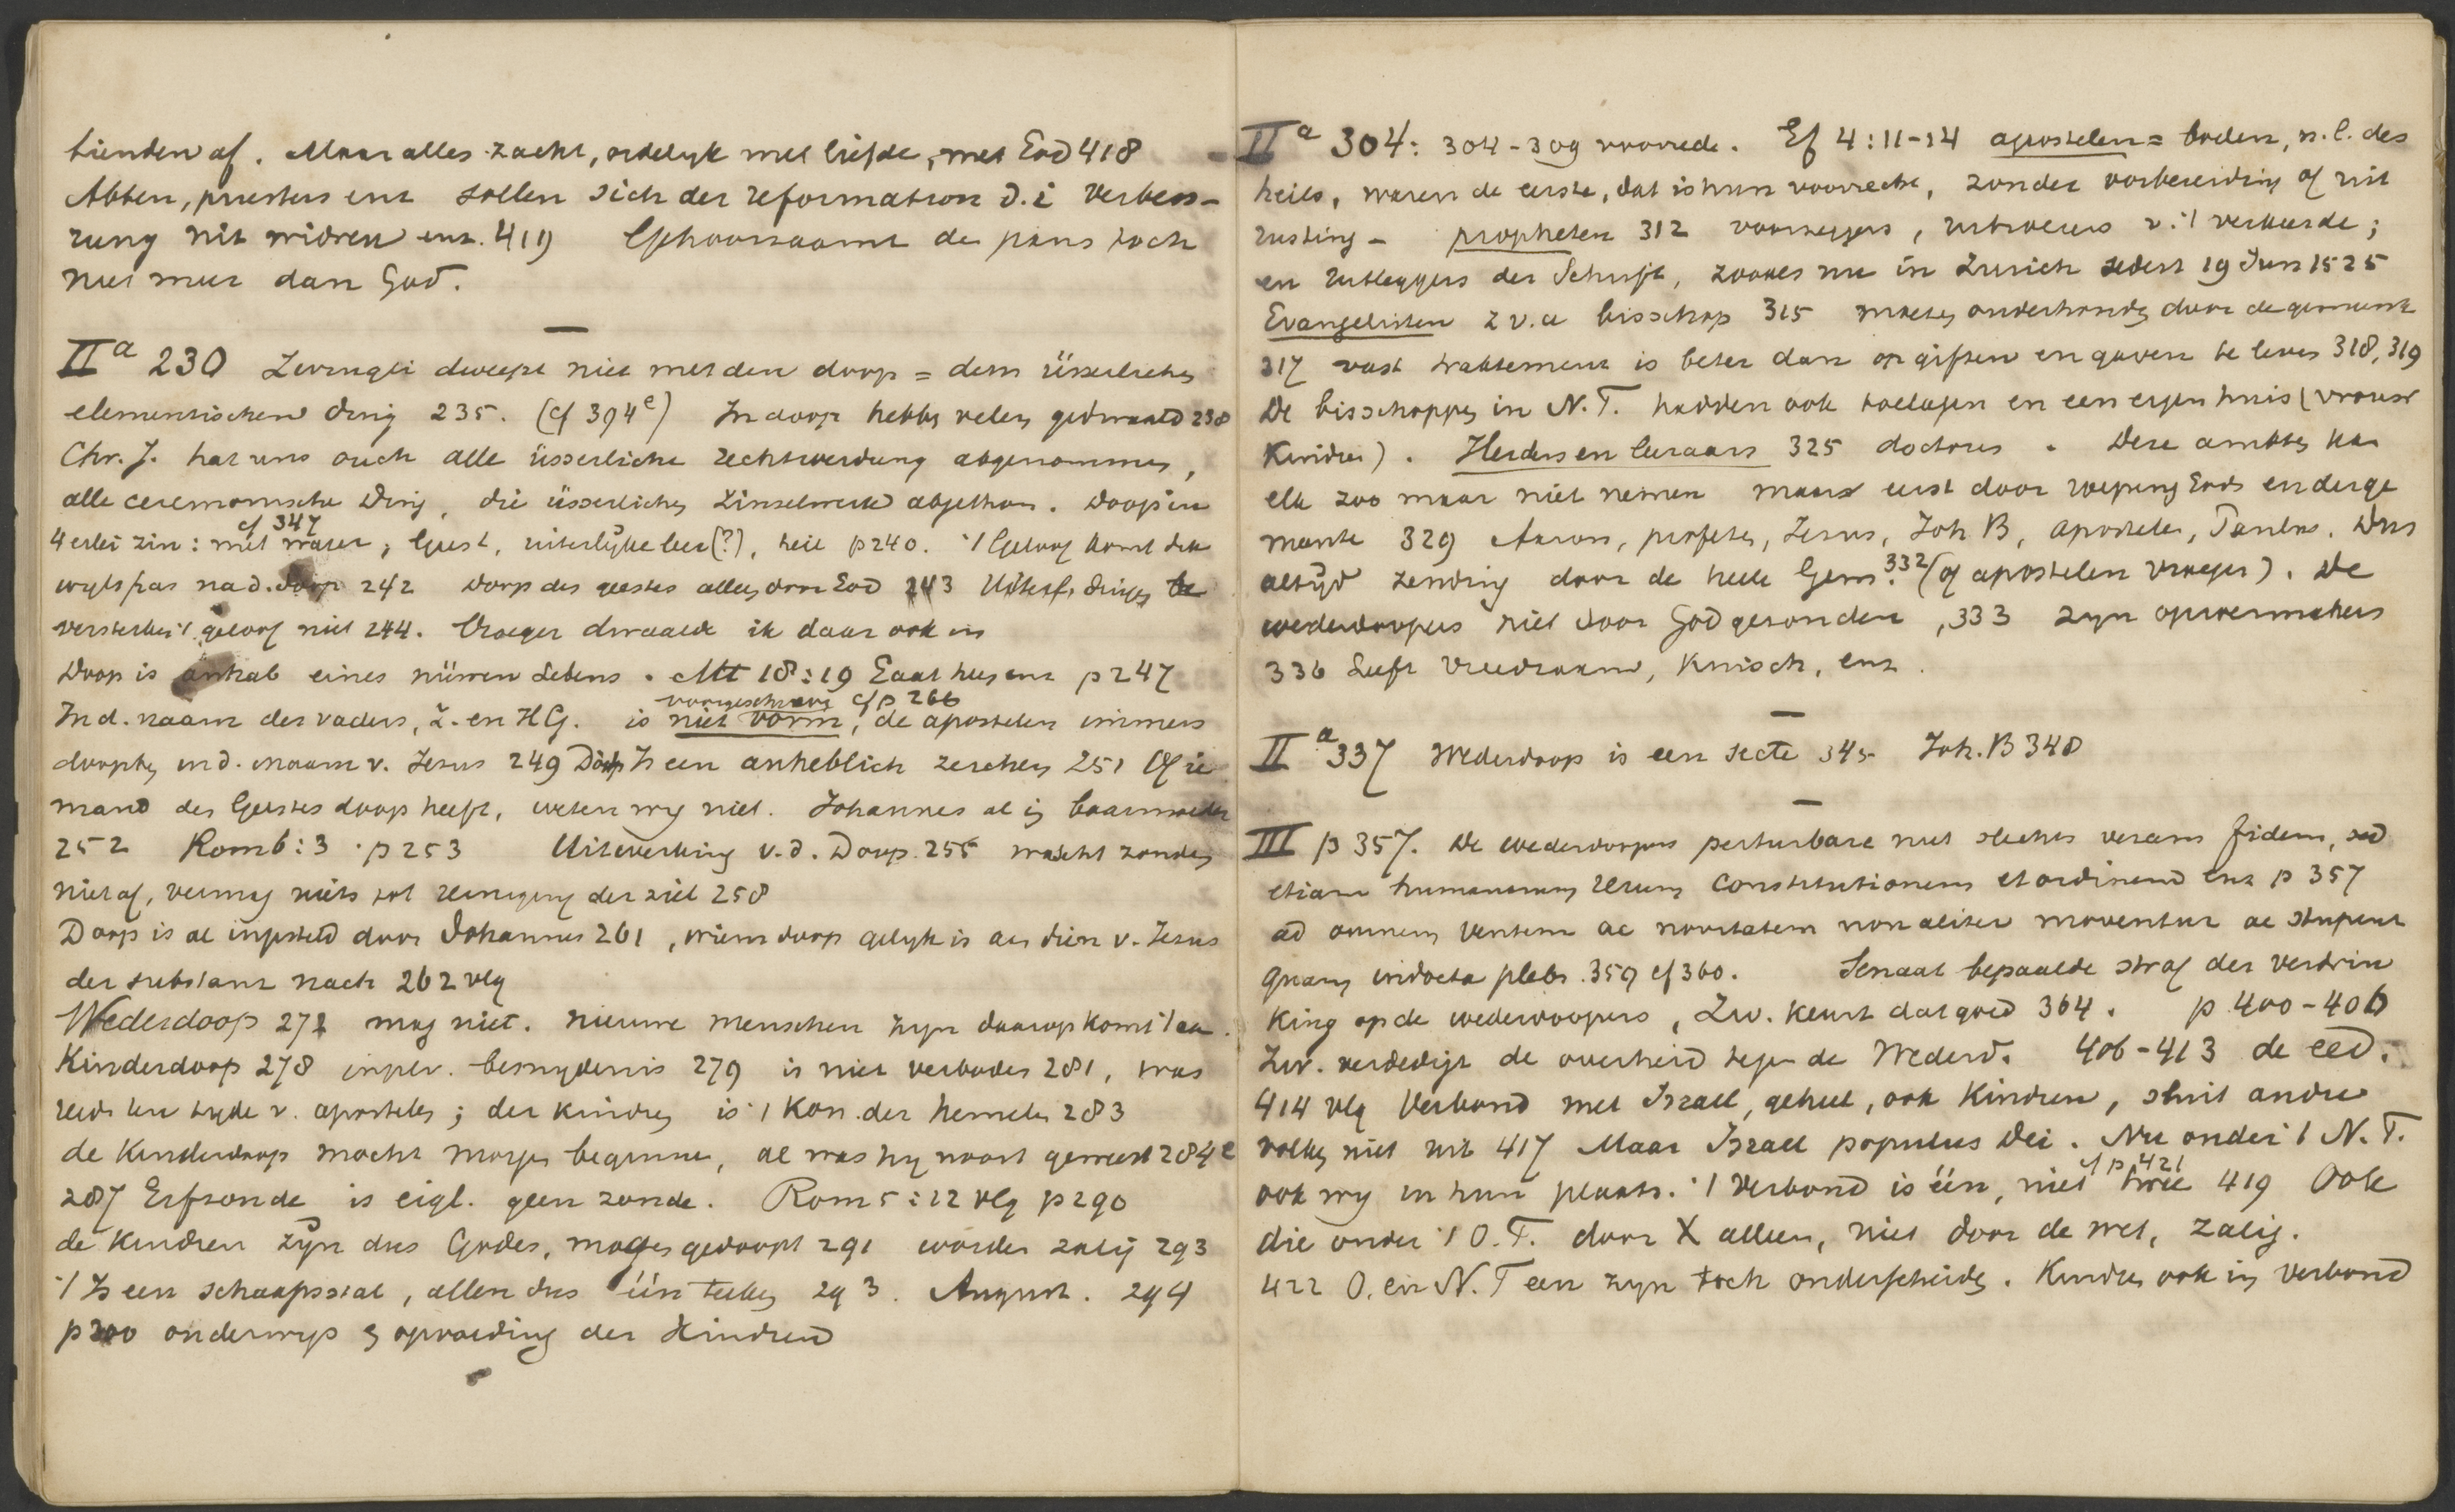 af. Maar alles zacht, ordelyk met liefde, met God 418
Abten, priesters enz sollen sich der reformation d.i verbess-
rung nit widren enz. 419 Gehoorzaamt de paus toch
niet meer dan God.
IIa 230 Zwingli dweept niet met den doop = dem üsserlichen
elementischen ding 235. (cf 394e) In doop hebben velen gedwaald 238
Chr. J. hat uns ouch alle üsserliche rechtwerdung abgenommen,
alle ceremonische Ding, die üsserlichen abgethon. Doop in
4 erlei zin: met water, geest, uiterlyke leer (?), heil p 240. 't Geloof komt dik
cf 347
wyls pas na d. doop 242 doop des geestes alleen door God 243 Uiterl. dingen
versterken 't geloof niet 244. Vroeger dwaalde ik daar ook in
Doop is anhab eines nüwen Lebens. Mt 18:19 Gaat heen enz p 247
voorgeschreven cf p 266
In d. naam des vaders, Z. en HG. is niet vorm, de apostelen immers
doopten in d. naam v. Jezus 249 Doop Is een anheblich zeichen 251 Of ie
mand des Geestes doop heeft, weten wy niet. Johannes al in baarmoeder
252 Rom 6:3 p 253 Uitwerking v. d. Doop. 255 wascht zonden
niet af, vermag niets tot reiniging der ziel 258
Doop is al ingesteld door Johannes 261, wiens doop gelyk is aan dien v. Jezus
der substanz nach 262 vlg
Wederdoop 272 mag niet. nieuwe menschen zyn daarop komt 't aan.
Kinderdoop 278 inplv. besnydenis 279 is niet verboden 281, was
reeds ten tyde v. apostelen; der kindren is 't Kon. der hemelen 283
de Kinderdoop mocht morgen beginnen, al was hy nooit geweest 284e
287 Erfzonde is eigl. geen zonde. Rom 5:12 vlg p 290
de kindren zyn dus Godes, mogen gedoopt 291 worden zalig 293
't Is een schaapsstal, allen dus één teeken 293. August. 294
p 300 onderwys & opvoeding der Kindren
IIa 304: 304-309 voorrede. Ef 4:11-14 apostelen = boden, n.l. des
heils, waren de eerste, dat is hun voorrecht, zonder voorbereiding of uit
rusting - propheten 312 voorzeggers, uitroeiers v. 't verkeerde;
en Uitleggers der Schrift, zooals nu in Zurich sedert 19 Jun 1525
Evangelisten z v. a bisschop 315 moeten onderhouden door de gemeente
317 vast traktement is beter dan op giften en gaven te leven 318, 319
De bisschoppen in N. T. hadden ook toelagen en een eigen huis (vrouw
Kindren). Herders en leeraars 325 doctores. Deze ambten kan
elk zoo maar niet nemen maar eerst door roeping Gods en der ge
meente 329 Aaron, profeten, Jezus, Joh B, apostelen, Paulus. Dus
altyd zending door de heele Gem. 332 (of apostelen vroeger). De
wederdoopers niet door God gezonden, 333 zyn oproermakers
336 Leeft vreedzaam, Kuisch, enz.
IIa 337 Wederdoop is een secte 345 Joh. B 348
III p 357. De wederdoopers perturbare niet slechts veram fidem, sed
etiam humanarum rerum constitutionem et ordinem enz p 357
ad omnem ventum ac novitatem non aliter moventur ac stupent
quam indocta plebs. 359 cf 360. Senaat bepaalde straf der verdrin
king op de wederdoopers, Zw. keurt dat goed 364. p 400-406
Zw. verdedigt de overheid tegen de Wederd. 406-413 de eed.
414 vlg Verbond met Israel, geheel, ook Kindren, sluit andre
volken niet uit 417 Maar Israel populus Dei. Nu onder 't N. T.
ook wy in hun plaats. 't Verbond is één, niet twee 419 Ook
cf p. 421
die onder 't O. T. door X alleen, niet door de wet, zalig.
422 O. en N. T een zyn toch onderscheiden. Kindren ook in verbond